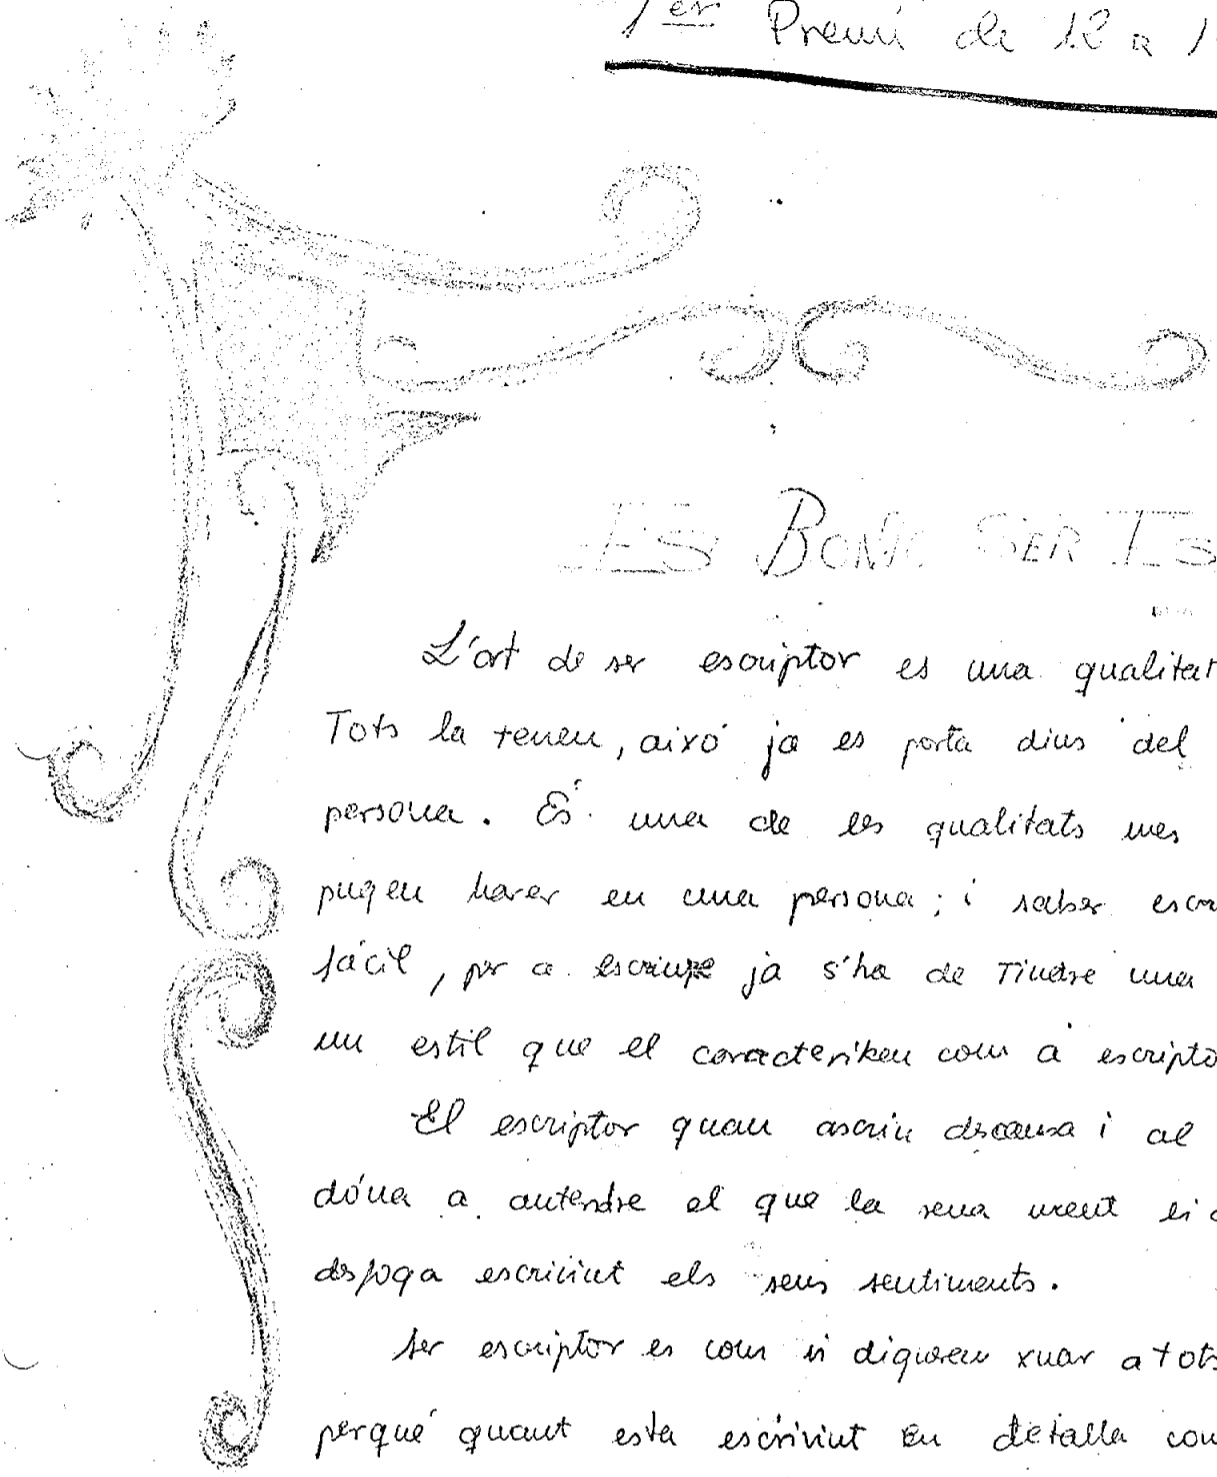 1er Premi de 12 a 1
ES BONA SER ES
L'art de ser escriptor es una qualitat
Tots la teneu, aixó ja es porta dins del
persona. És una de les qualitats mes
pugeu haver en una persona; i saber escr
fácil, per a escriure ja s'ha de Tindre una
un estil que el caracteriken com a escripto
El escriptor quan ascriu descansa i al
dóna a antendre el que la seua ment li d
desfoga escrivint els seus sentiments.
Ser escriptor es com si diguerem xuar a tots
perqué quant esta escrivint Eu detalla com